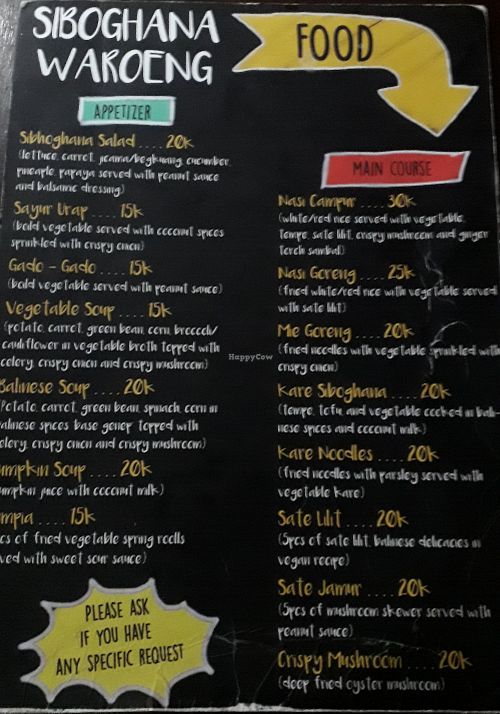 SIBOGHANA
WAROENG
FOOD
APPETIZER
Sibhoghana Salad .... 20k
(lettuce, carrot, jicama/begkuang, cucumber,
pineaple, papaya served with peanut sauce
and balsamic dressing)
Sayur Urap .... 15k
(boild vegetable served with coconut spices
sprinkled with crispy onion)
Gado - Gado .... 15k
(boild vegetable served with peanut sauce)
Vegetable Soup .... 15k
(potato, carrot, green bean, corn, broccoli/
cauliflower in vegetable broth topped with
celery, crispy onion and crispy mushroom)
Balinese Soup .... 20k
Potato, carrot, green bean, spinach, corn in
alinese spices base genep topped with
elery, crispy onion and crispy mushroom)
umpkin Soup .... 20k
umpkin juice with coconut milk)
umpia .... 15k
cs of fried vegetable spring rools
ved with sweet sour sauce)
PLEASE ASK
IF YOU HAVE
ANY SPECIFIC REQUEST
MAIN COURSE
Nasi Campur .... 30k
(white/red rice served with vegetable,
Tempe, sate lilit, crispy mushroom and ginger
Torch sambal)
Nasi Goreng .... 25k
(fried white/red rice with vegetable served
with sate lilit)
Mie Goreng .... 20k
(fried noodles with vegetable sprinkled with
crispy onion)
Kare Siboghana .... 20k
(tempe, tofu, and vegetable cooked in bali-
nese spices and coconut milk)
Kare Noodles .... 20k
(fried noodles with parsley served with
vegetable kare)
Sate Lilit .... 20k
(5pcs of sate lilit, balinese delicacies in
vegan recipe)
Sate Jamur .... 20k
(5pcs of mushroom skewer served with
peanut sauce)
Crispy Mushroom .... 20k
(deep fried oyster mushroom)
HappyCow